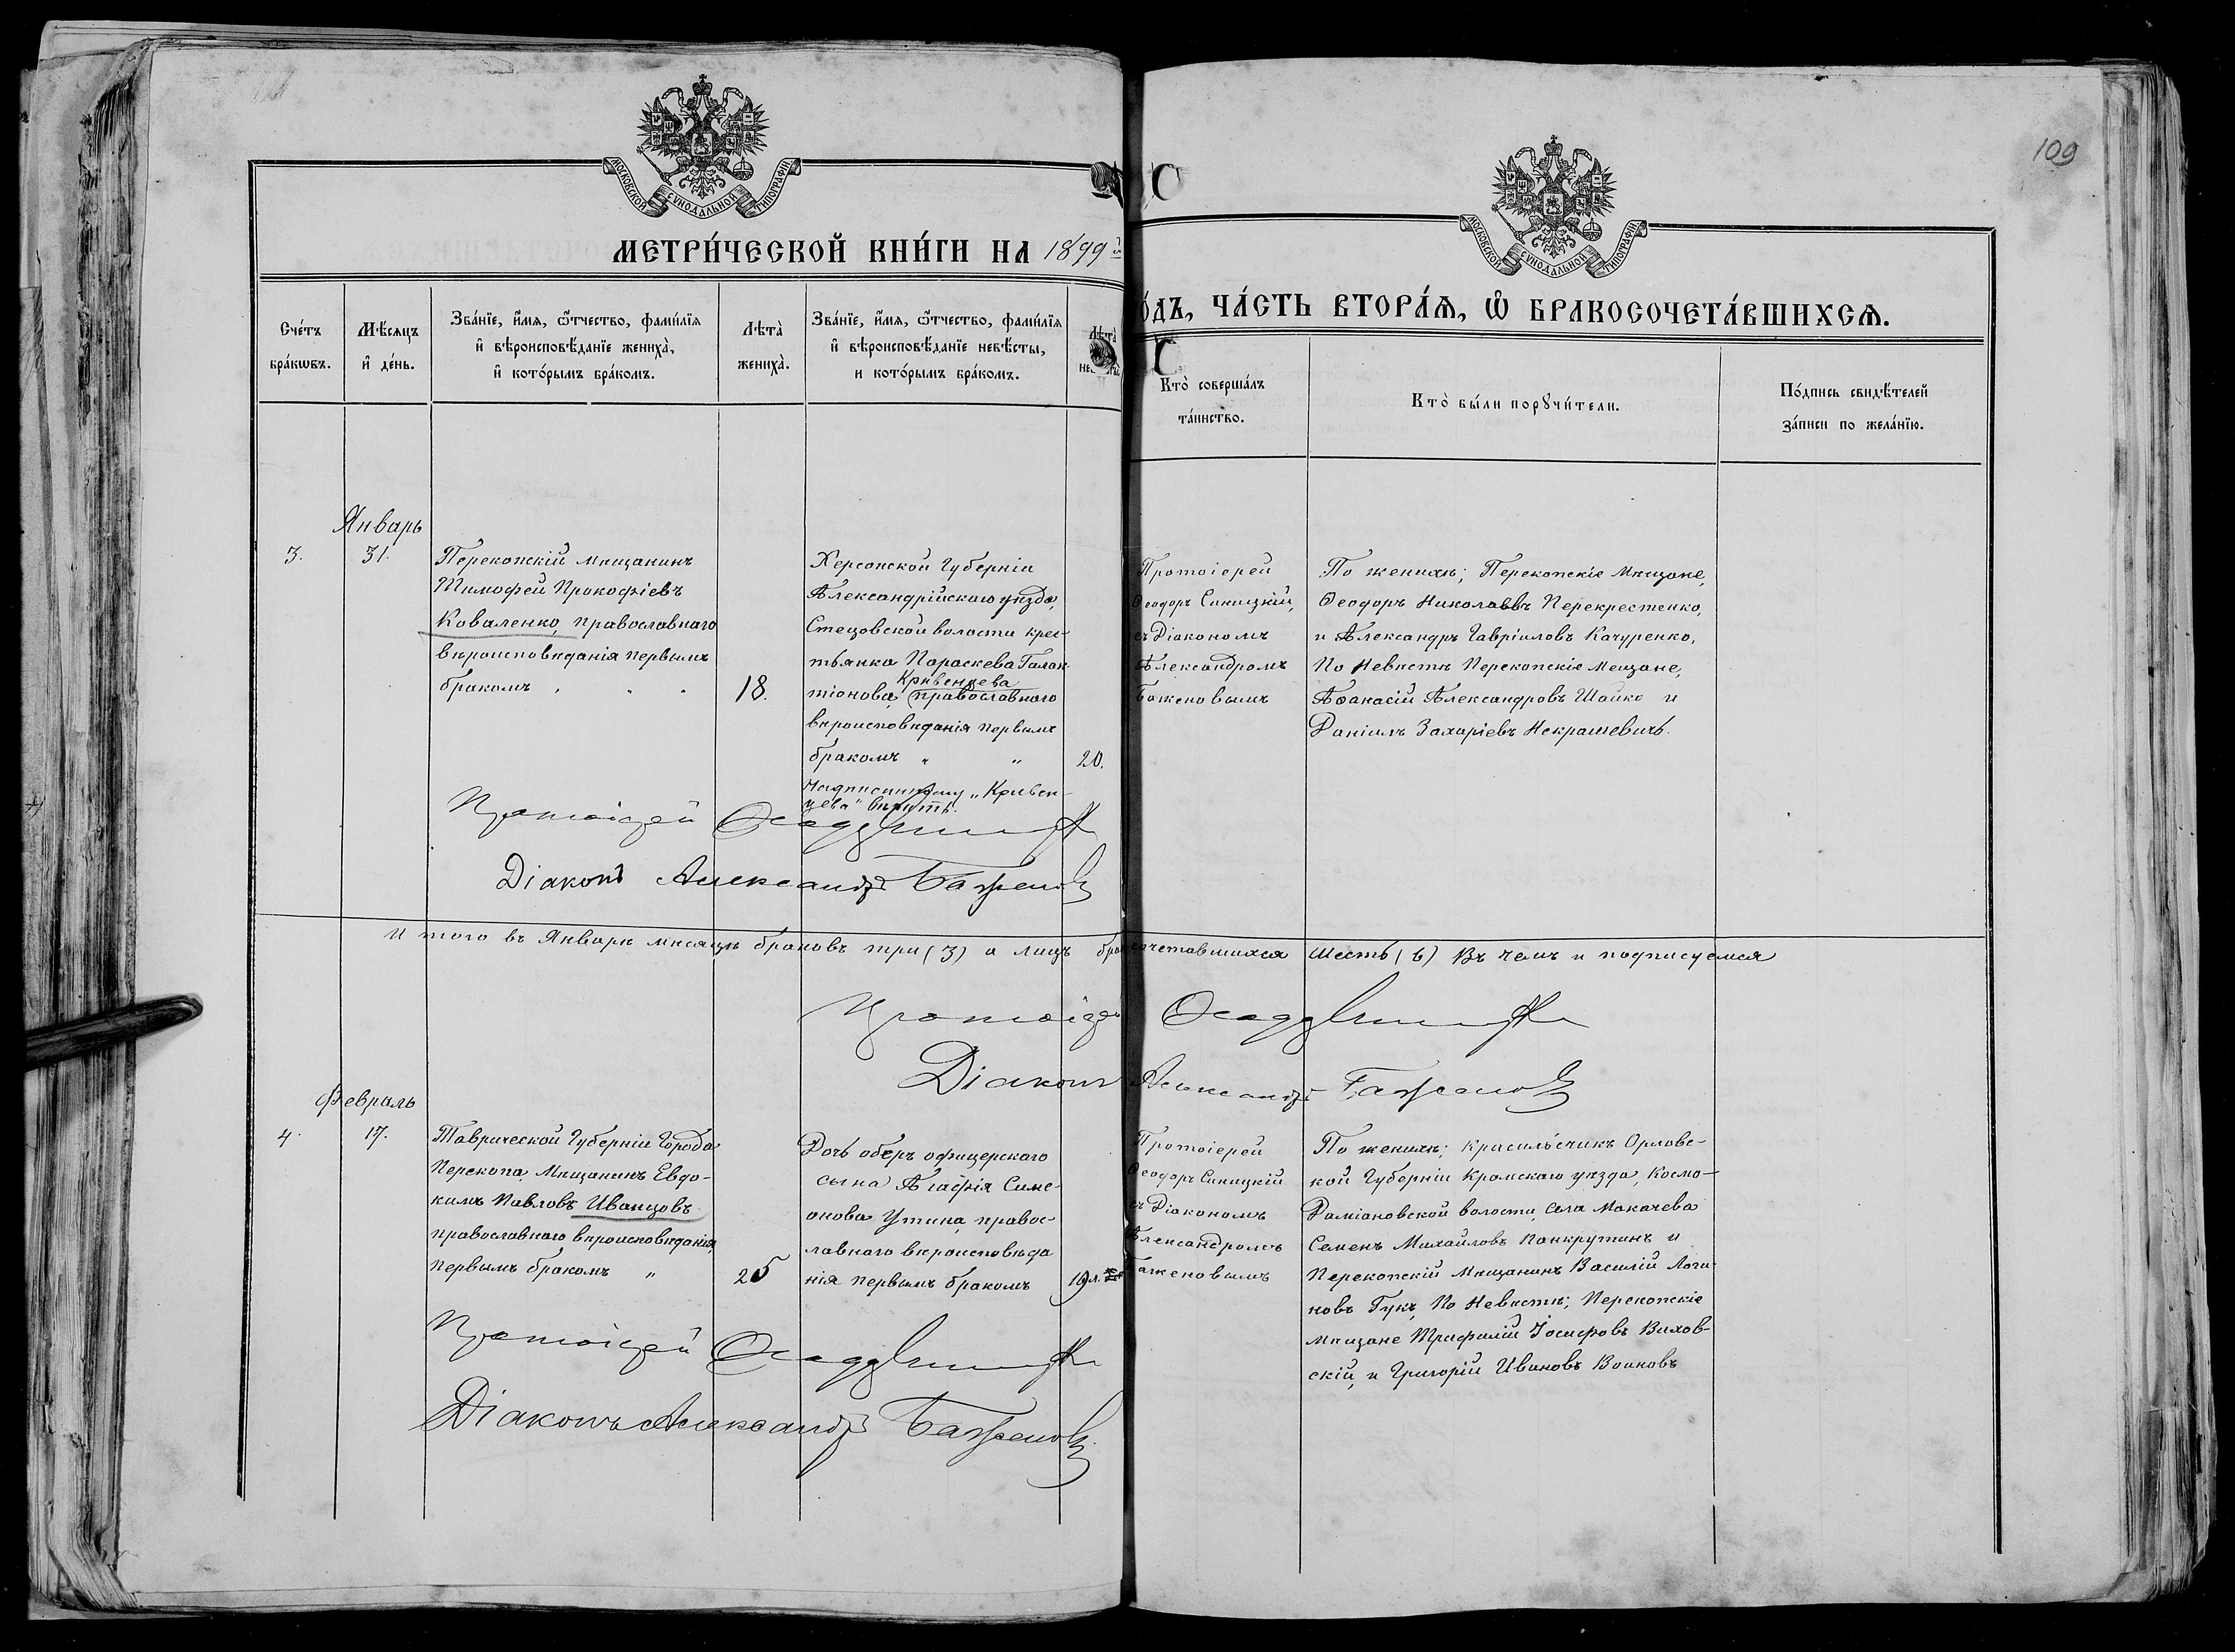 109
МОСКОВСКОЙ СѴНОДАЛЬНОЙ ТИПОГРАФІИ
МОСКОВСКОЙ СѴНОДАЛЬНОЙ ТИПОГРАФІИ
МЕТРИ́ЧЕСКОЙ КНИ́ГИ НА 1899й
О́ДЪ, ЧА́СТЬ ВТОРА́Я, Ѿ БРАКОСОЧЕТА́ВШИХСЯ.
Сче́тъ
бра́кѡвъ.
Мѣ́сяцъ
и҆ де́нь.
Зва́нїе, и҆́мя, ѻ҆́тчество, фами́лїя
и҆ вѣроисповѣ́данїе жениха̀,
и҆ кото́рымъ бра́комъ.
Лѣта̀
жениха̀.
Зва́нїе, и҆́мя, ѻ҆́тчество, фами́лїя
и҆ вѣроисповѣ́данїе невѣ́сты,
и кото́рымъ бра́комъ.
Лѣта̀
Кто̀ соверша́лъ
та́инство.
Кто̀ бы́ли порꙋчи́тели.
По́дпись свидѣ́телей
за́писи по жела́нїю.
Январь
3.
31.
Перекопскій мѣщанинъ
Тимофей Прокофіевъ
Коваленко, православнаго
вѣроисповѣданія первымъ
бракомъ „ „ „
18.
Херсонской Губерніи
Александрійскаго уѣзда,
Стецовской волости крес-
тьянка Параскева Галак
Кривенцева
тіонова, православнаго
вѣроисповѣданія первымъ
бракомъ „ „
20.
Надписанному „Кривен-
цева" вѣрить.
Протоіерей
Ѳеодоръ Синицкій,
съ Діакономъ
Александромъ
Баженовымъ
По женихѣ; Перекопскіе Мѣщане,
Ѳеодоръ Николаевъ Перекрестенко,
и Александръ Гавріиловъ Качуренко,
По Невѣстѣ Перекопскіе Мещане,
Аѳанасій Александровъ Шайко и
Даніилъ Захаріевъ Некрашевичъ.
Протоіерей
Діаконъ Александръ Баженовъ
Итого въ Январѣ мѣсяцѣ браковъ три (3) а лицъ бракосочетавшихся шесть (6) Въ чемъ и подписуемся
Протоіерей
Діаконъ Александръ Баженовъ
Февраль
4.
17.
Таврической Губерніи Города
Перекопа, Мѣщанинъ Евдо-
кимъ Павловъ Иванцовъ
православнаго вѣроисповѣданія,
первымъ бракомъ „
25
Дочь оберъ офицерскаго
сына Агафія Симе-
онова Утина, правос-
лавнаго вѣроисповѣда
нія первымъ бракомъ
19 л.
Протоіерей
Ѳеодоръ Синицкій
съ Діакономъ
Александромъ
Баженовымъ
По женихѣ; красильсчикъ Орловс-
кой Губерніи Кромскаго уѣзда, Космо-
Даміановской волости, села Макачева
Семенъ Михайловъ Панкрутинъ и
Перекопскій Мѣщанинъ Василій Логи-
новъ Гукъ, По Невѣстѣ; Перекопскіе
мѣщане Трифилій Іосифовъ Вихов-
скій, и Григорій Ивановъ Воиновъ
Протоіерей
Діаконъ Александръ Баженовъ